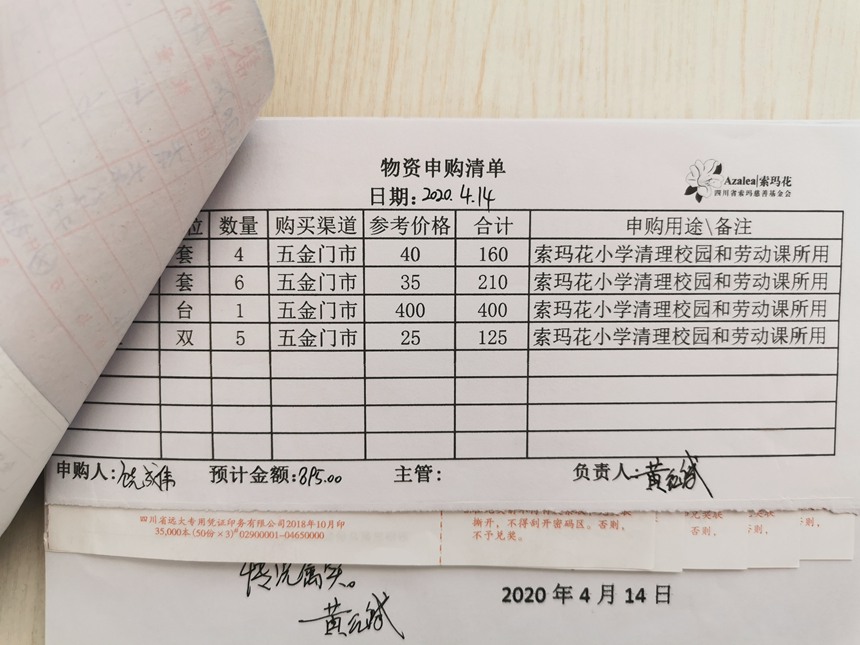 物资申购清单
Azalea|索玛花
四川省索玛慈善基金会
日期:2020.4.14
位 数量 购买渠道 参考价格 合计 申购用途\备注
套 4 五金门市 40 160 索玛花小学清理校园和劳动课所用
套 6 五金门市 35 210 索玛花小学清理校园和劳动课所用
台 1 五金门市 400 400 索玛花小学清理校园和劳动课所用
双 5 五金门市 25 125 索玛花小学清理校园和劳动课所用
申购人: 预计金额:895.00 主管: 负责人:黄红斌
四川省远大专用凭证印务有限公司2018年10月印
35,000本(50份×3)#02900001-04650000
撕开,不得刮开密码区。否则,
不予兑奖。
否则,
情况属实。
黄红斌
2020年4月14日